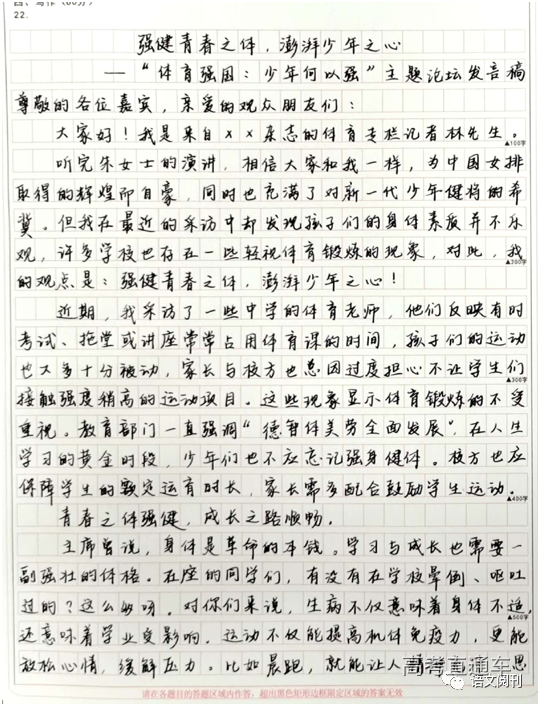 四、写作(60分)
22.
强健青春之体，澎湃少年之心
——“体育强国：少年何以强”主题论坛发言稿
尊敬的各位嘉宾，亲爱的观众朋友们：
大家好！我是来自××杂志的体育专栏记者林先生。
▲100字
听完朱女士的演讲，相信大家和我一样，为中国女排
取得的辉煌而自豪，同时也充满了对新一代少年健将的希
冀。但我在最近的采访中却发现孩子们的身体素质并不乐
观，许多学校也存在一些轻视体育锻炼的现象，对此，我
▲200字
的观点是：强健青春之体，澎湃少年之心！
近期，我采访了一些中学的体育老师，他们反映有时
考试、拖堂或讲座常常占用体育课的时间，孩子们的运动
也大多十分被动，家长与校方也总因过度担心不让学生们
▲300字
接触强度稍高的运动项目。这些现象显示体育锻炼的不受
重视。教育部门一直强调“德智体美劳全面发展”，在人生
学习的黄金时段，少年们也不应忘记强身健体。校方也应
保障学生的额定运育时长，家长需多配合鼓励学生运动。
▲400字
青春之体强健，成长之路顺畅。
主席曾说，身体是革命的本钱。学习与成长也需要一
副强壮的体格。在座的同学们，有没有在学校晕倒、呕吐
过的？这么多呀。对你们来说，生病不仅意味着身体不适，
▲500字
还意味着学业受影响。运动不仅能提高机体免疫力，更能
放松心情，缓解压力。比如晨跑，就能让人
思
高考直通车
语文阅刊
请在各题目的答题区域内作答，超出黑色矩形边框限定区域的答案无效